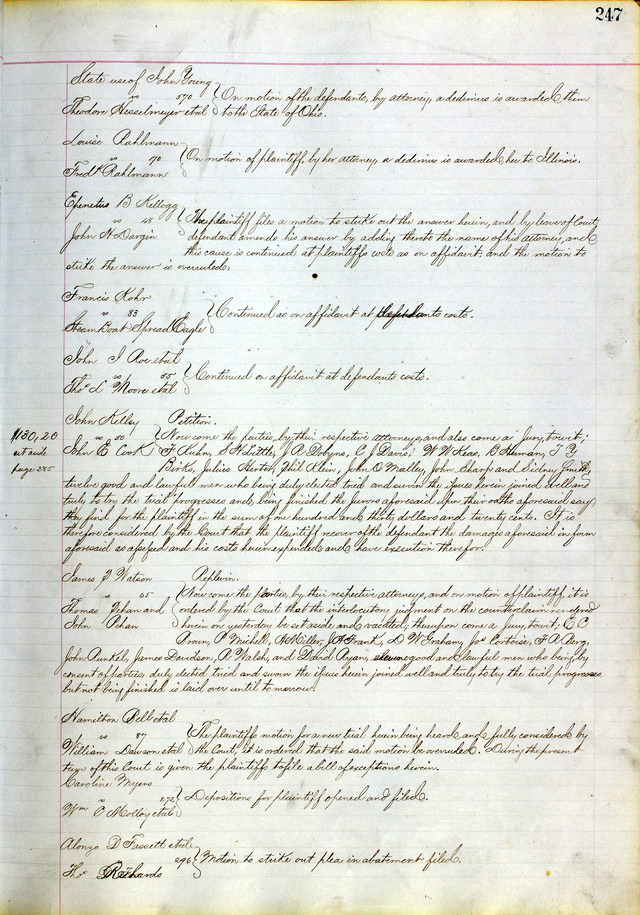 247
State use of John Young
vs 570 On motion of the defendants, by attorney, a dedimus is awarded them
Theodore Hesselmeyer etal to the State of Ohio.
Louise Rahlmann
vs 70 On motion of plaintiff, by her attorney, a dedimus is awarded her to Illinois.
Fredk Rahlmann
Epenetus B Kellogg
vs 48 The plaintiff files a motion to strike out the answer herein, and by leave of Court,
John H Dargin defendant amends his answer by adding thereto the name of his attorney, and
this cause is continued at plaintiffs costs as on affidavit, and the motion to
strike the answer is overruled.
Francis Kohr
vs 83 Continued as on affidavit at defendants costs.
Steam Boat Spread Eagle
John I Roe etal
vs 55 Continued on affidavit at defendants costs.
Thos L Moore etal
John Kelley Petition.
$130,20 vs 50 Now come the parties, by their respective attorneys, and also come a Jury, towit;
set aside John E Cook F Kuhn, S H Leith, J A Dobyns, C J Davis, W W Keas, B Heman, T Y
page 285 Birks, Julius Hertes, Phil Klein, John O Malley, John Sharp and Sidney Smith,
twelve good and lawfull men who being duly elected tried and sworn the issues herein joined well and
truly to try the trial progresses and being finished the Jurors aforesaid upon their oath aforesaid say
they find for the plaintiff in the sum of one hundred and thirty dollars and twenty cents. It is
therefore considered by the Court that the plaintiff recover of the defendant the damages aforesaid in form
aforesaid assessed and his costs herein expended and have execution therefor.
James J Watson Replevin.
vs 65 Now come the parties, by their respective attorneys, and on motion of plaintiff, it is
Thomas Pehan and ordered by the Court that the interlocutory judgment on the counterclaim rendered
John Pehan herein on yesterday be set aside and vacated, thereupon come a Jury, towit; E C
Brown, P Michell, H Miller, J H Frank, D W Graham, Jos Cortoise, F A Berg,
John Runkel, James Davidson, R Walsh, and David Ryan, eleven good and lawful men who being by
consent of parties duly elected tried and sworn the issues herein joined well and truly to try the trial progresses
but not being finished is laid over until tomorrow.
Hamilton Bell etal
vs 87 The plaintiffs motion for a new trial herein being heard and fully considered by
William Dawson etal the Court, it is ordered that the said motion be overruled. During the present
term of this Court is given the plaintiffs to file a bill of exceptions herein.
Caroline Myers
vs 272 Depositions for plaintiff opened and filed.
Wm C Molloy etal
Alonzo D Fassett etal
296 Motion to strike out plea in abatement filed.
Thos Richards